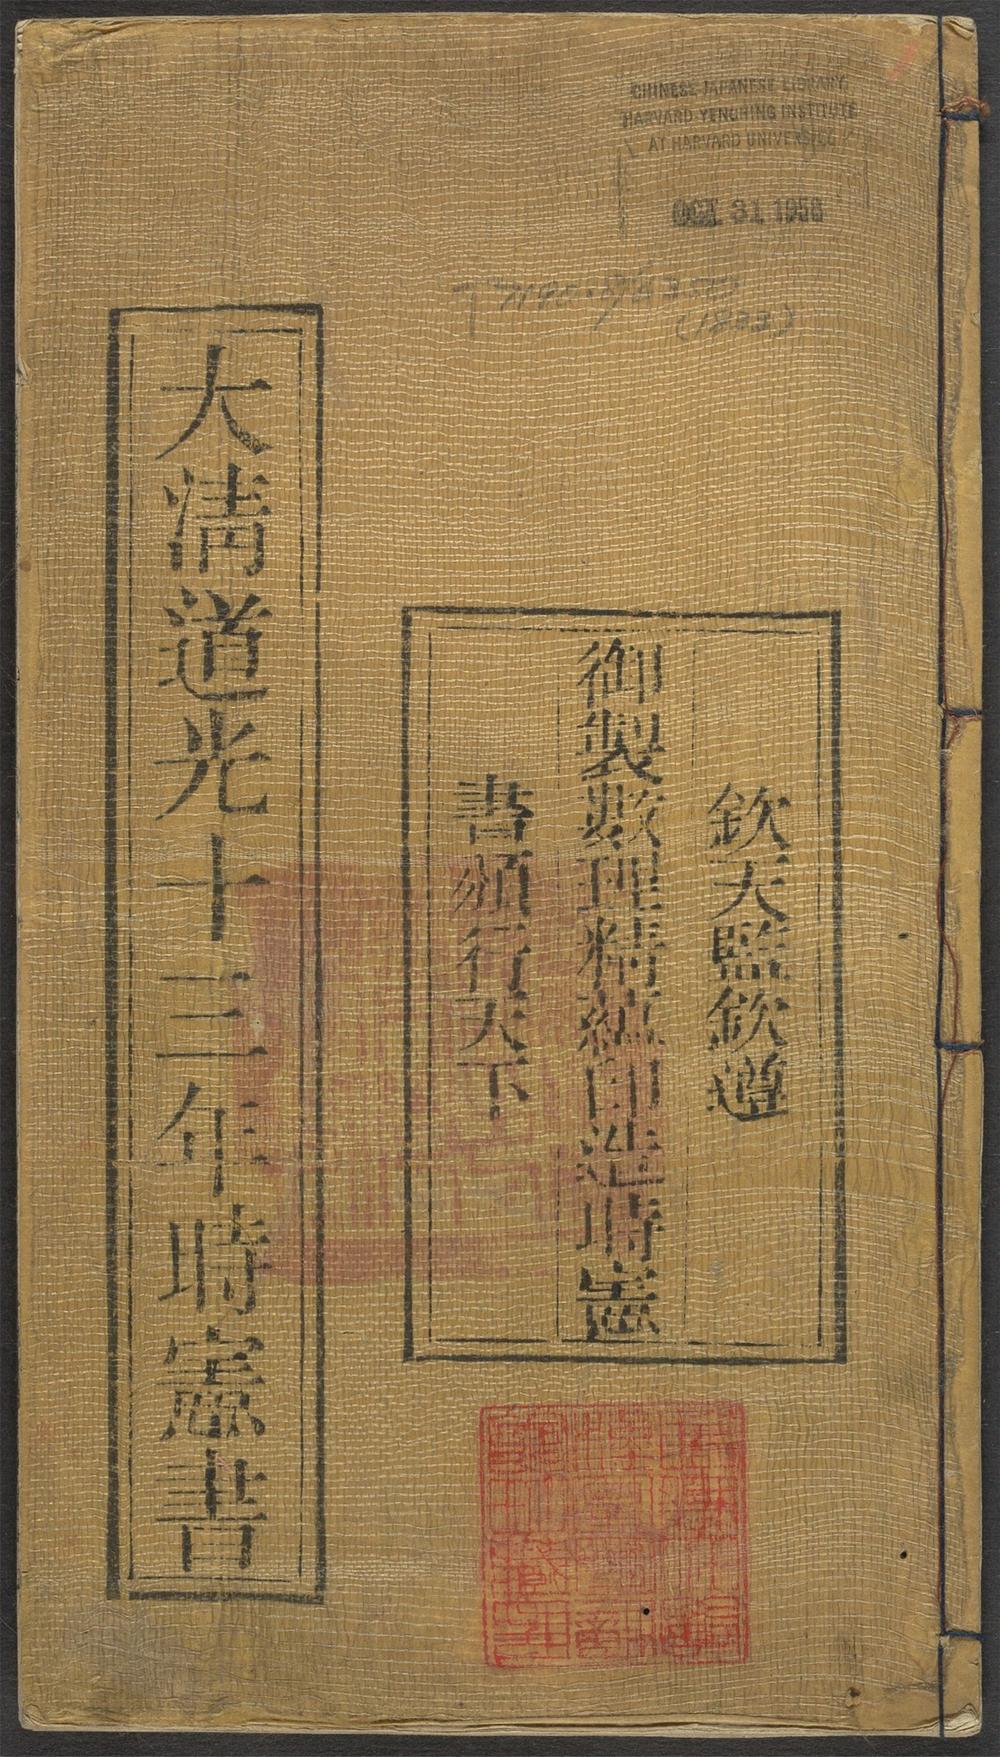 CHINESE JAPANESE LIBRARY
HARVARD YENCHING INSTITUTE
AT HARVARD UNIVERSITY
OCT 31 1956
(1833)
欽天監欽遵
御製數理精蘊印造時憲
書頒行天下
大清道光十三年時憲書